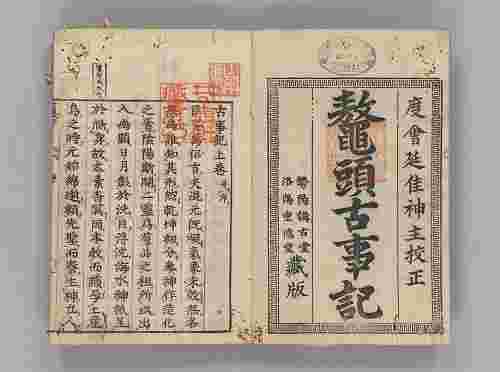 度會延佳神主校正
鼇頭古事記
藏版
古事記上卷
臣安萬侶言夫混元既凝氣象未效無名
無爲誰知其形然乾坤初分參神作造化
之首陰陽斯開二靈爲羣品之祖所以出
入幽顯日月彰於洗目浮沈海水神祇呈
於滌身故太素杳冥因本敎而識孕土產
嶋之時元始綿邈賴先聖而察生神立人